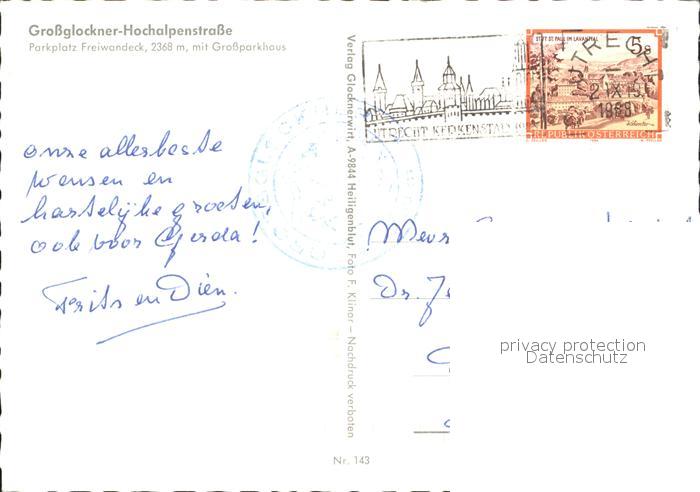 Großglockner-Hochalpenstraße
Parkplatz Freiwandeck, 2368 m, mit Großparkhaus
onze allerbeste
wensen en
hartelijke groeten,
ook voor Gerda!
Frits en Dien.
Verlag Glocknerwirt, A-9844 Heiligenblut, Foto F. Klinar – Nachdruck verboten
Nr. 143
UTRECHT KERKENSTAD
STIFT ST. PAUL IM LAVANTTAL
5 S
REPUBLIK ÖSTERREICH
UTRECHT
1988
Mevr
Dr.
privacy protection
Datenschutz